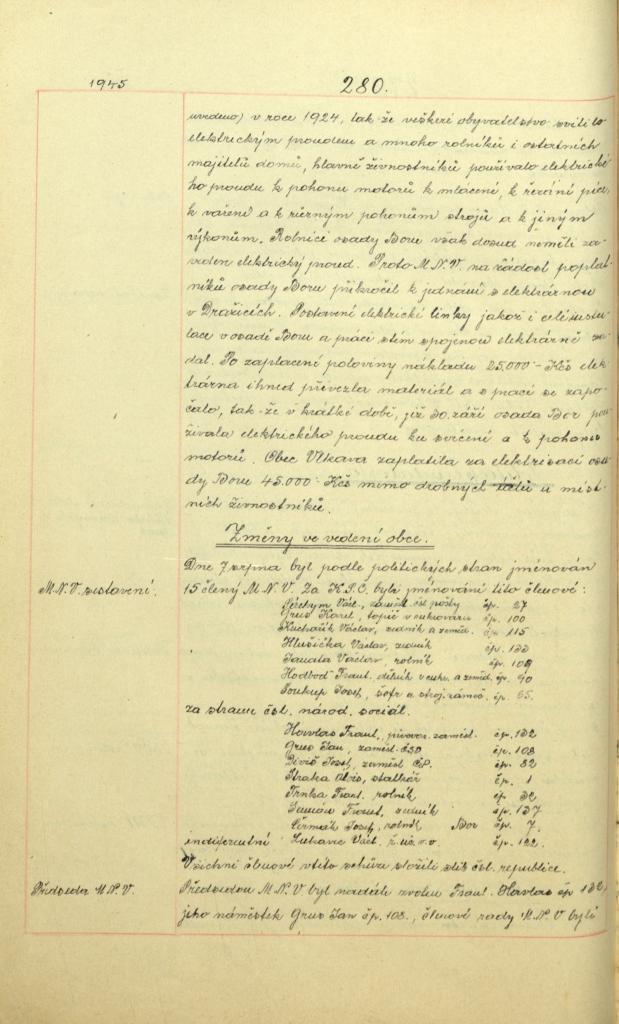 1945
280.
uvedeno) v roce 1924, tak-že veškeré obyvatelstvo svítilo
elektrickým proudem a mnoho rolníků i ostatních
majitelů domů, hlavně živnostníků používalo elektrické-
ho proudu k pohonu motorů k mlácení, k řezání píce,
k vaření a k různým pohonům strojů a k jiným
výkonům. Rolníci osady Boru však dosud neměli za-
veden elektrický proud. Proto M.N.V. na žádost poplat-
níků osady Boru přikročil k jednání s elektrárnou
v Dražicích. Postavení elektrické linky jakož i celé insta-
lace v osadě Boru a práci s tím spojenou elektrárně za-
dal. Po zaplacení poloviny nákladu 25.000 - Kčs elek-
trárna ihned převezla materiál a s prací se zapo-
čalo, tak-že v krátké době, již 30. září osada Bor pou-
žívala elektrického proudu ku svícení a k pohonu
motorů. Obec Vlkava zaplatila za elektrisaci osa-
dy Boru 45.000 - Kčs mimo drobných účtů u míst-
ních živnostníků.
Změny ve vedení obce.
Dne 7 srpna byl podle politických stran jmenován
M.N.V. sestavení.
15 člený M.N.V. Za K.S.Č. byli jmenováni tito členové:
Václ., zaměst. čsl pošty čp. 27
Grus Karel, topič v cukrovaru čp. 100
Kuchařík Václav, zedník a zeměd. čp. 115
Hlušička Václav, zedník čp. 133
Janata Václav, rolník čp. 109
Hodboď Frant. dělník v cukr. a zeměd. čp. 40
Soukup Josef, šofr a stroj. zámeč. čp. 65
za stranu čsl. národ. sociál.
Havlas Frant., pivovar. zaměst. čp. 132
Grus Jan, zaměst. ČSD čp. 108
Diviš Josef, zaměst ČP. čp. 82
Straka Alois, statkář čp. 1
Trnka Frant. rolník čp. 32
Frant, zedník čp. 137
Čermák Josef, rolník Bor čp. 7.
indiferentní Václ. čp. 122.
Všichni členové v této schůzi složili slib čsl. republice.
Předseda M.N.V.
Předsedou M.N.V. byl nadále zvolen Frant. Havlas čp 132,
jeho náměstek Grus Jan čp. 108., členové rady M.N.V byli